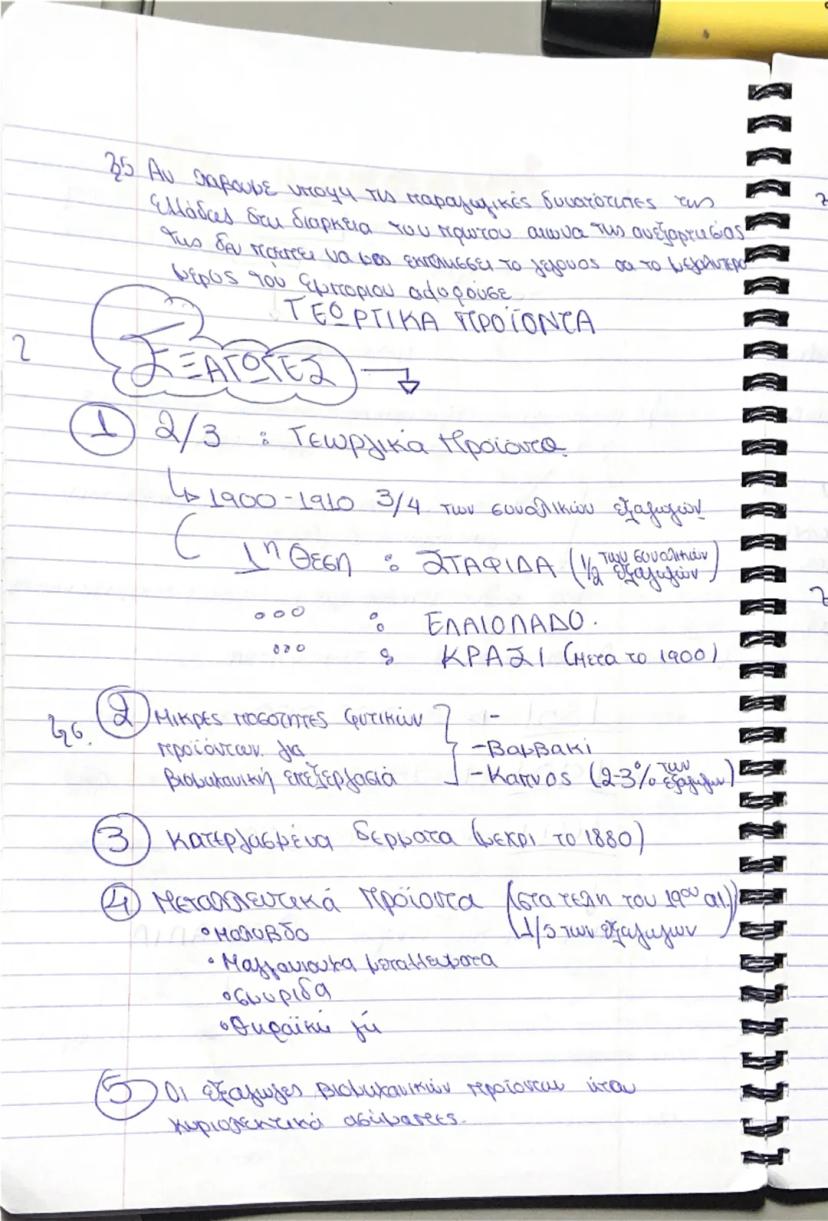 25 Αν λάβουμε υπόψη τις παραγωγικές δυνατότητες της
Ελλάδας στη διάρκεια του πρώτου αιώνα της ανεξαρτησίας
της δεν πρέπει να μας εκπλήσσει το γεγονός οα το μεγαλύτερο
μέρος του εμπορίου αφορούσε
ΓΕΩΡΓΙΚΑ ΠΡΟΪΟΝΤΑ
ΕΞΑΓΩΓΕΣ
1 2/3 : Γεωργικά Προϊόντα.
1900-1910 3/4 των συνολικών εξαγωγών
1η Θέση : ΣΤΑΦΙΔΑ (1/2 των συνολικών εξαγωγών)
ooo : ΕΛΑΙΟΛΑΔΟ.
ooo : ΚΡΑΣΙ (Μετα το 1900)
26. 2 Μικρές ποσότητες φυτικών } -
προϊόντων για -Βαμβακι
βιομηχανική επεξεργασία -Καπνος (2-3% των εξαγωγών)
3 Κατεργασμένα δέρματα (μεχρι το 1880)
4 Μεταλλευτικά Προϊοντα (στα τελη του 19ου αι.)
1/5 των εξαγωγων
• Μολυβδο
• Μαγγανιουχα μεταλλευματα
• σμυριδα
• Θηραϊκή γή
5 Οι εξαγωγες βιομηχανικών προϊοντων ήταν
κυριολεκτικά ασήμαντες.